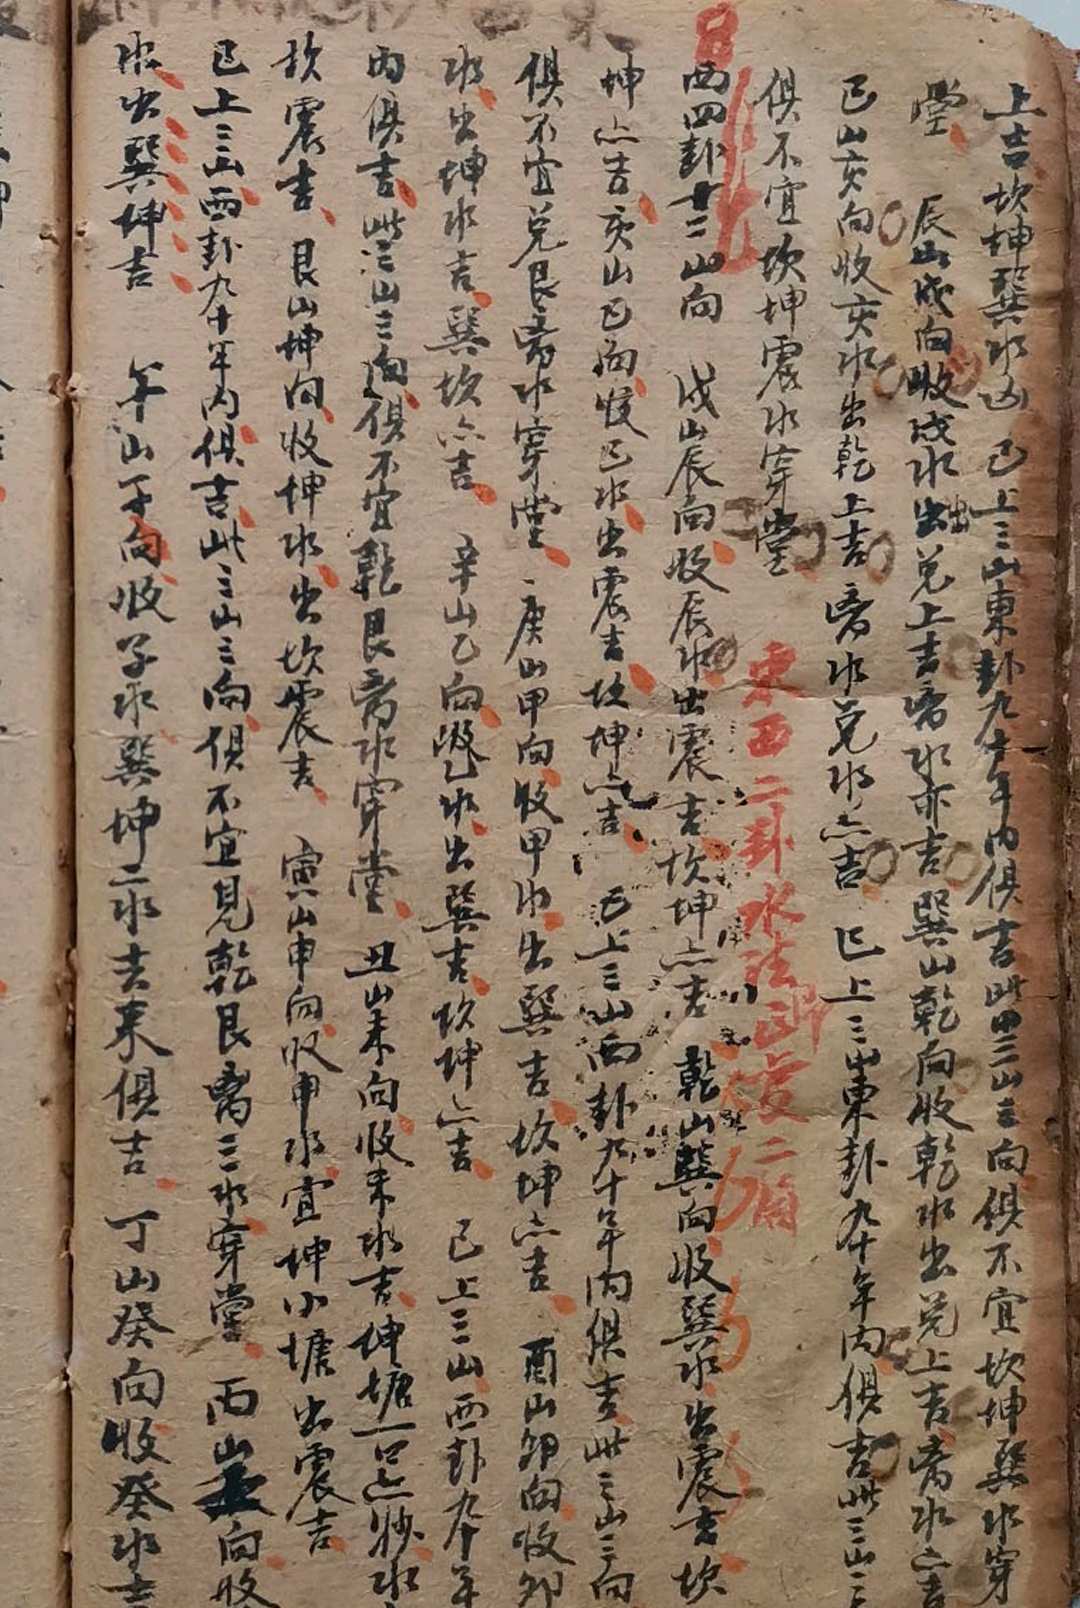 上吉坎坤巽水凶 已上三山東卦九十年内俱吉此三山三向俱不宜坎坤巽水穿
堂 辰山戌向收戌水出兑上吉离水亦吉巽山乾向收乾水出兑上吉离水亦吉
巳山亥向收亥水出乾上吉离水兑水亦吉 已上三山東卦九十年内俱吉此三山三
俱不宜坎坤震水穿堂 東西二卦水法
西四卦廿二山向 戌山辰向收辰水出震吉坎坤亦吉 乾山巽向收巽水出震吉坎
坤亦吉亥山巳向收巳水出震吉坎坤亦吉 已上三山西卦九十年内俱吉此三山三向
俱不宜兑艮离水穿堂 庚山甲向收甲水出巽吉坎坤亦吉 酉山卯向收卯
水出坤水吉巽坎亦吉 辛山乙向收乙水出巽吉坎坤亦吉 已上三山西卦九十年
内俱吉此三山三向俱不宜乾艮离水穿堂 丑山未向收未水吉坤塘一口亦妙水
坎震吉 艮山坤向收坤水出坎震吉 寅山申向收申水宜坤小塘出震吉
已上三山西卦九十年内俱吉此三山三向俱不宜見乾艮离三水穿堂 丙山壬向收
水出巽坤吉 午山子向收子水巽坤二水去来俱吉 丁山癸向收癸水吉